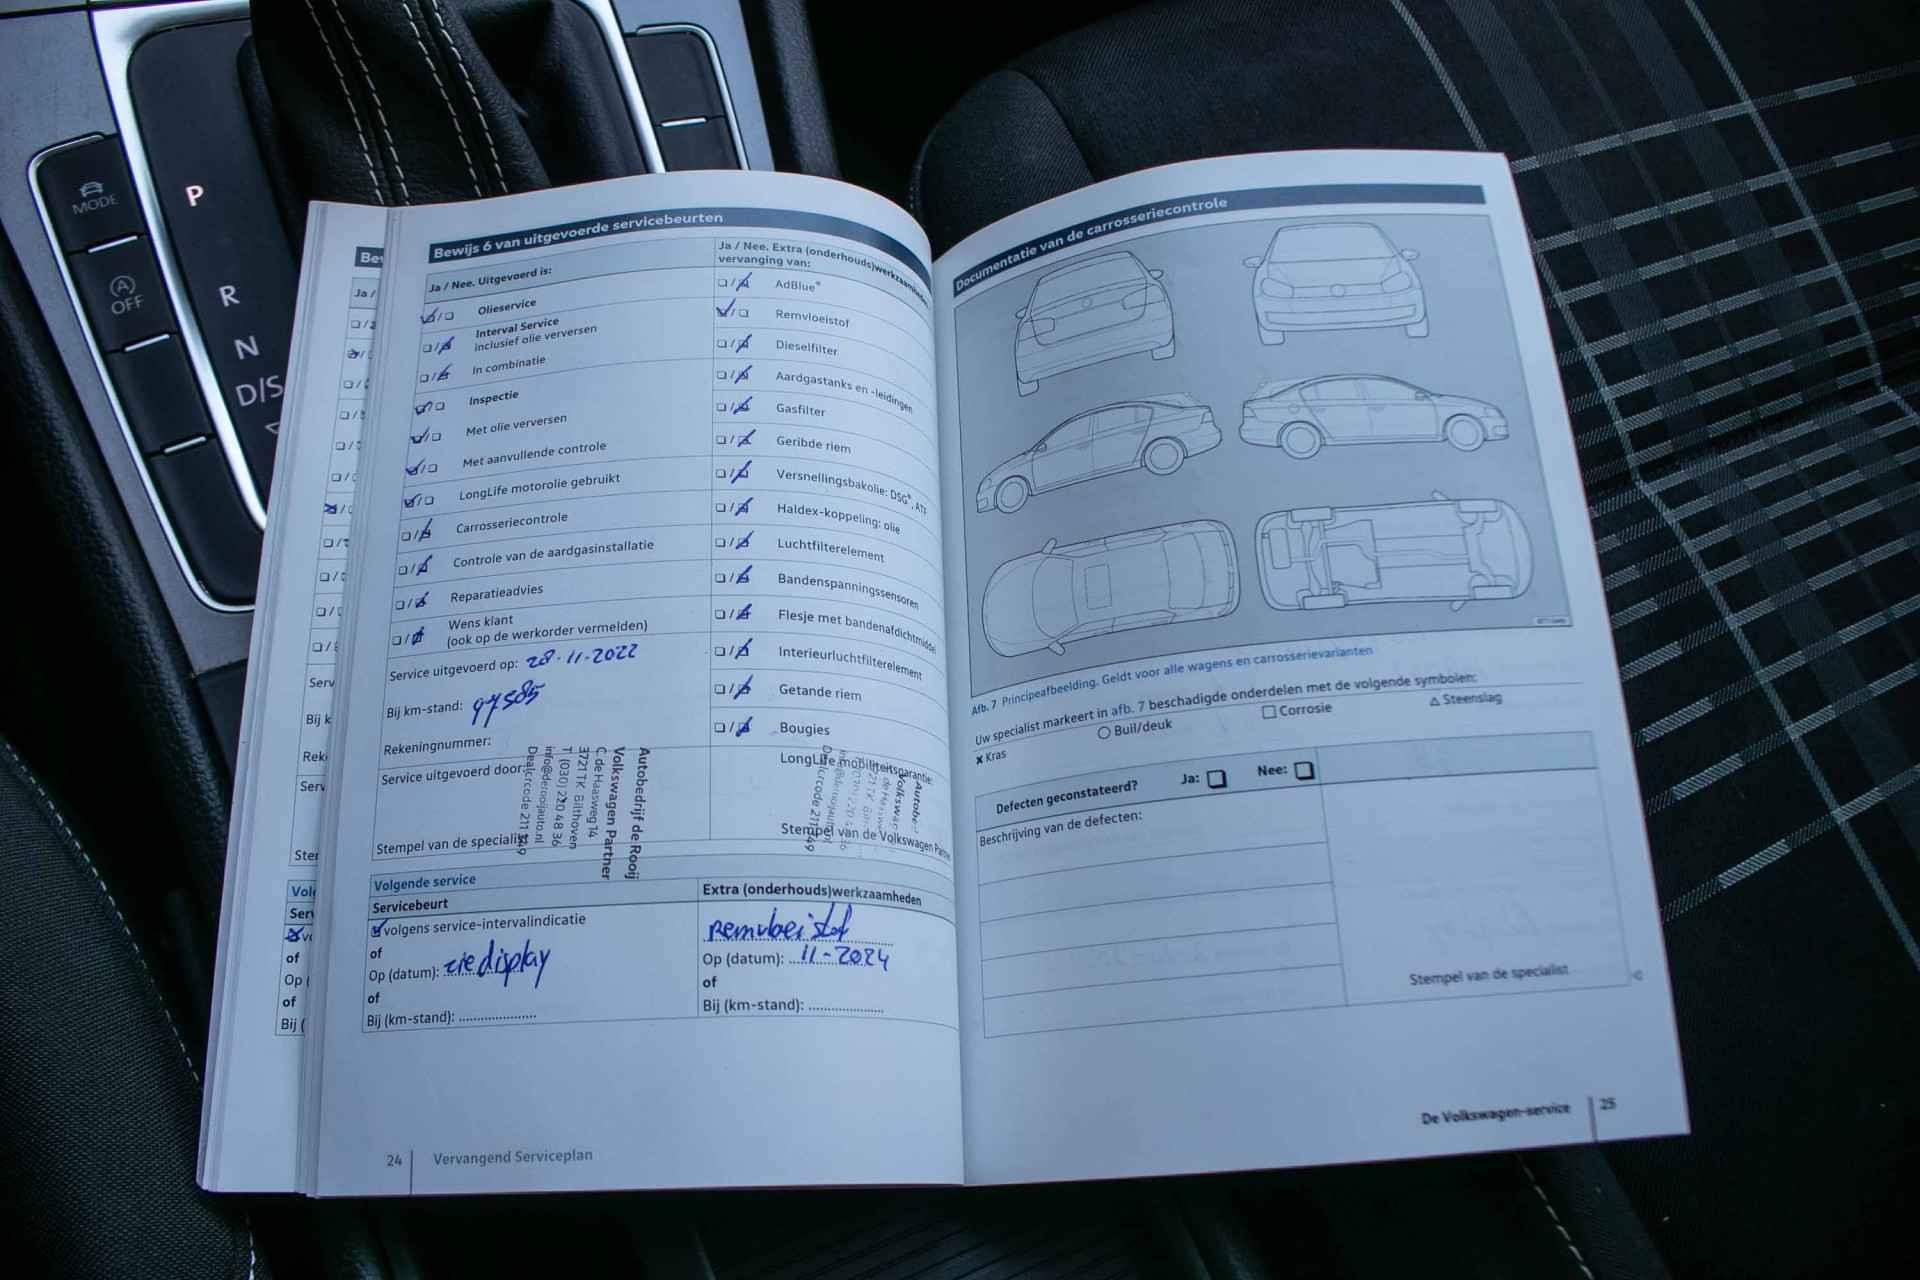 MODE
OFF
P
R
N
D/S
Bewijs 6 van uitgevoerde servicebeurten
Ja / Nee. Uitgevoerd is:
Olieservice
Interval Service
inclusief olie verversen
In combinatie
Inspectie
Met olie verversen
Met aanvullende controle
LongLife motorolie gebruikt
Carrosseriecontrole
Controle van de aardgasinstallatie
Reparatieadvies
Wens klant
(ook op de werkorder vermelden)
Service uitgevoerd op: 28-11-2022
Bij km-stand: 97585
Rekeningnummer:
Service uitgevoerd door:
Autobedrijf de Rooij
Volkswagen Partner
C. de Haasweg 14
3721 TK Bilthoven
T (030) 220 48 36
info@derooijauto.nl
Dealercode 211 349
Stempel van de specialist
Ja / Nee. Extra (onderhouds)werkzaamheden
vervanging van:
AdBlue®
Remvloeistof
Dieselfilter
Aardgastanks en -leidingen
Gasfilter
Geribde riem
Versnellingsbakolie: DSG®, ATF
Haldex-koppeling: olie
Luchtfilterelement
Bandenspanningssensoren
Flesje met bandenafdichtmiddel
Interieurluchtfilterelement
Getande riem
Bougies
LongLife mobiliteitsgarantie:
Stempel van de Volkswagen
Volgende service
Servicebeurt
volgens service-intervalindicatie
of
Op (datum): zie display
of
Bij (km-stand): .....................
Extra (onderhouds)werkzaamheden
Remvloeistof
Op (datum): 11-2024
of
Bij (km-stand): .....................
24
Vervangend Serviceplan
Documentatie van de carrosseriecontrole
Afb. 7 Principeafbeelding. Geldt voor alle wagens en carrosserievarianten
Uw specialist markeert in afb. 7 beschadigde onderdelen met de volgende symbolen:
x Kras
Buil/deuk
Corrosie
Steenslag
Defecten geconstateerd? Ja: Nee:
Beschrijving van de defecten:
Stempel van de specialist
De Volkswagen-service
25